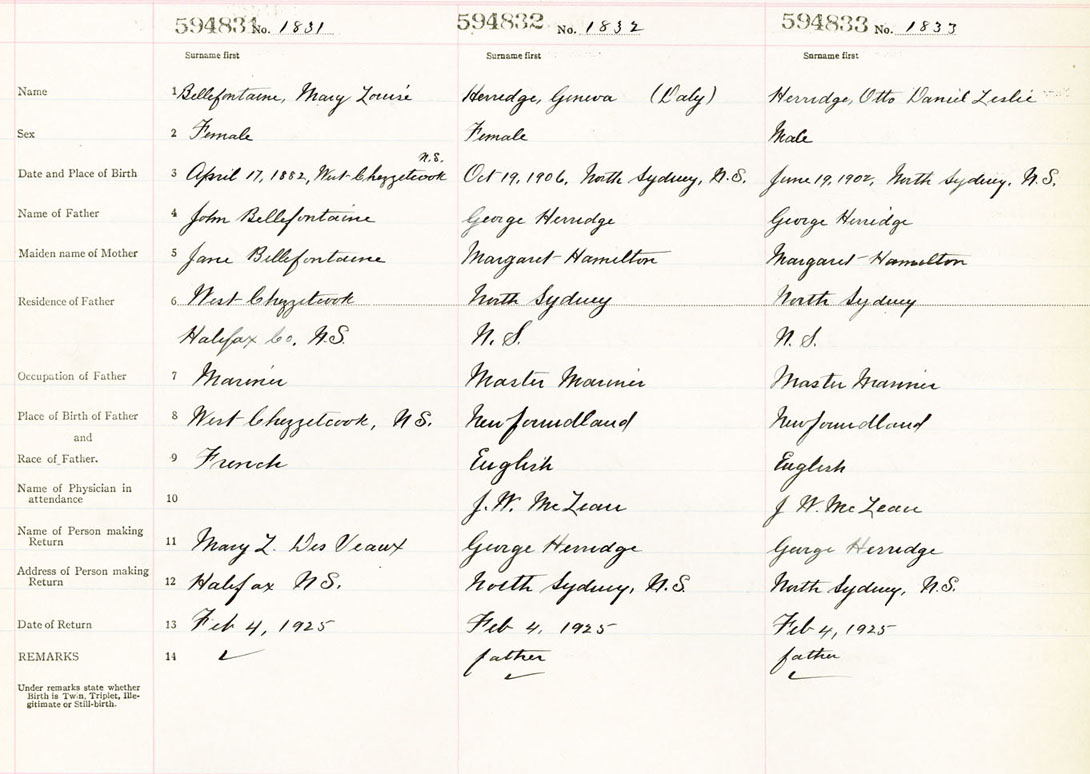 594831 No. 1831 594832 No. 1832 594833 No. 1833
Surname first Surname first Surname first
Name 1 Bellefontaine, Mary Louise Herridge, Geneva (Daly) Herridge, Otto Daniel Leslie
Sex 2 Female Female Male
N.S.
Date and Place of Birth 3 April 17, 1882, West Chezzetcook Oct 19, 1906, North Sydney, N.S. June 19, 1902, North Sydney, N.S.
Name of Father 4 John Bellefontaine George Herridge George Herridge
Maiden name of Mother 5 Jane Bellefontaine Margaret Hamilton Margaret Hamilton
Residence of Father 6 West Chezzetcook North Sydney North Sydney
Halifax Co, N.S. N.S. N.S.
Occupation of Father 7 Mariner Master Mariner Master Mariner
Place of Birth of Father 8 West Chezzetcook, N.S. Newfoundland Newfoundland
and
Race of Father. 9 French English English
Name of Physician in
attendance 10 J. W. McLean J W. McLean
Name of Person making
Return 11 Mary L. Des Veaux George Herridge George Herridge
Address of Person making
Return 12 Halifax N.S. North Sydney, N.S. North Sydney, N.S.
Date of Return 13 Feb 4, 1925 Feb 4, 1925 Feb 4, 1925
REMARKS 14 father father
Under remarks state whether
Birth is Twin, Triplet, Ille-
gitimate or Still-birth.